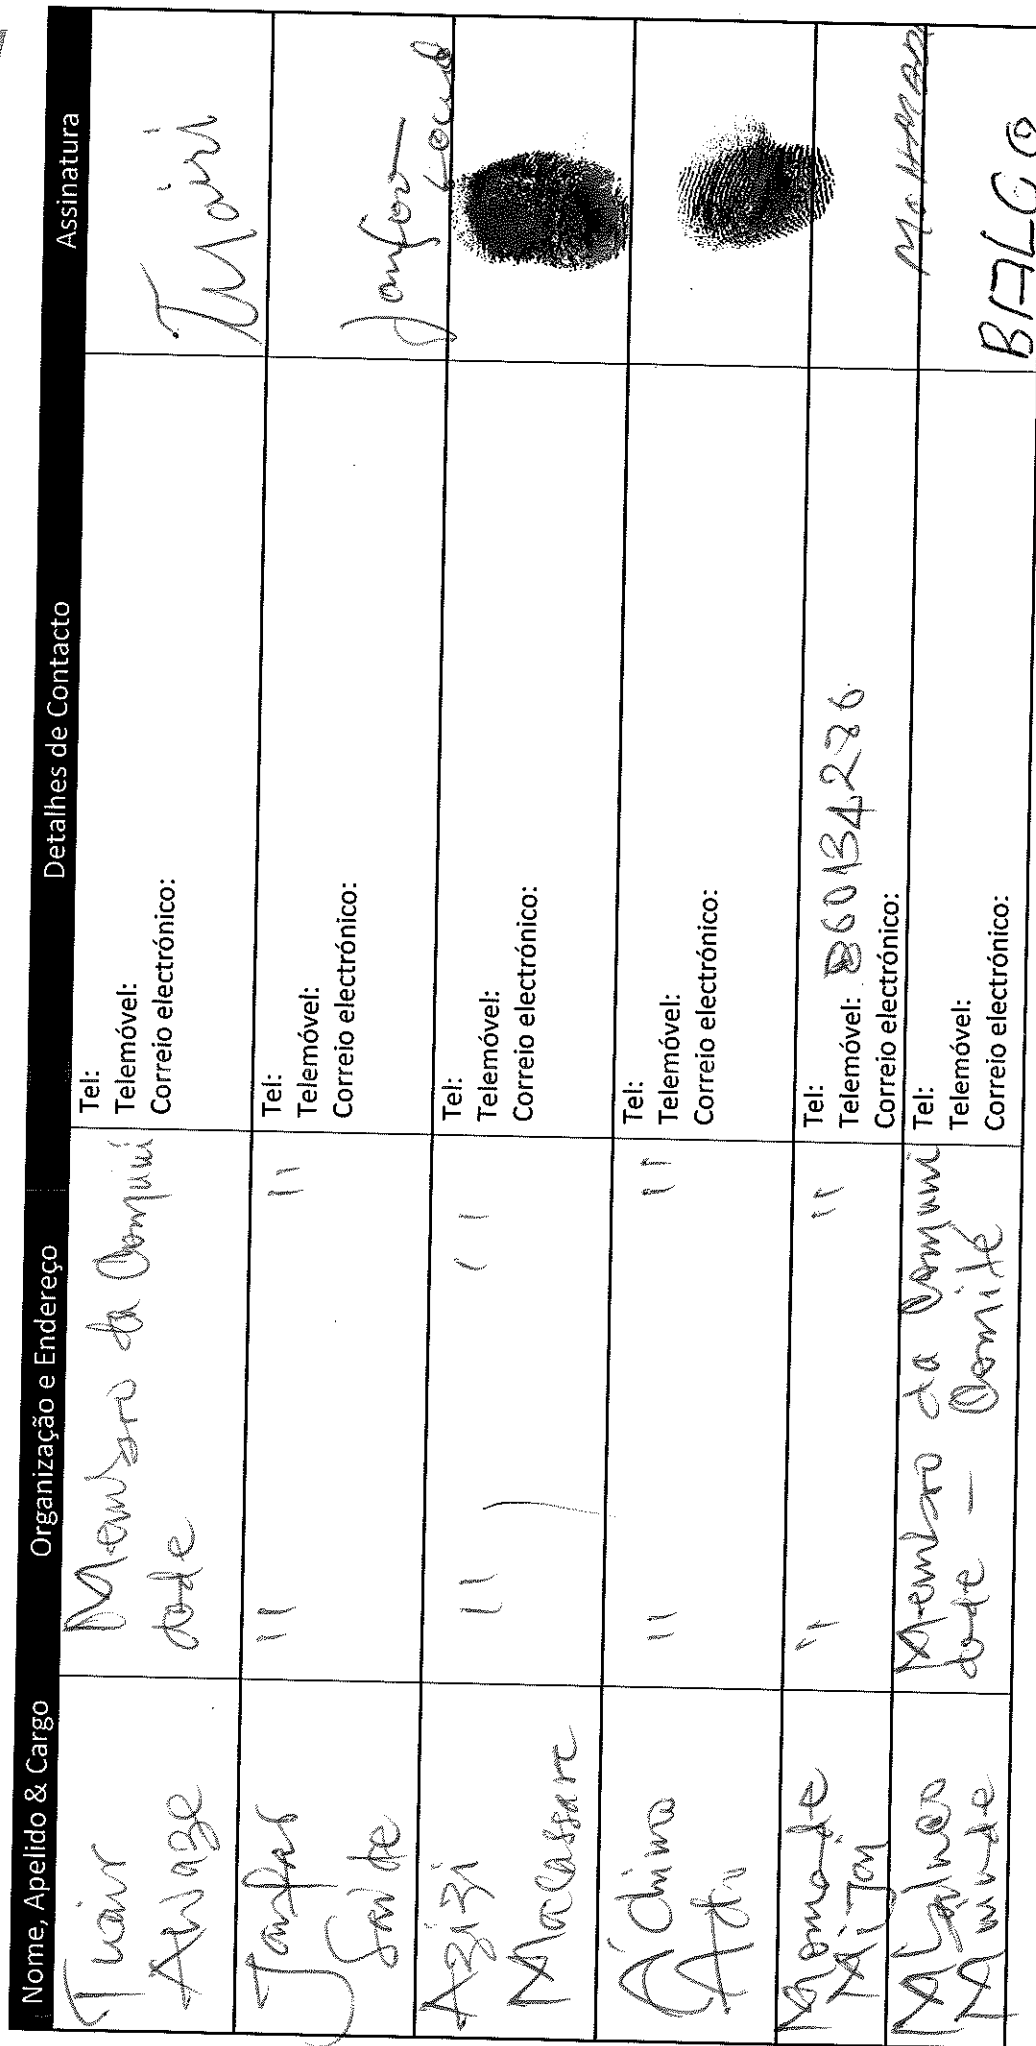 Nome, Apelido & Cargo Organização e Endereço Detalhes de Contacto Assinatura
Tuair
Membro da Comuni
dade
Tel:
Telemóvel:
Correio electrónico:
Tuairi
Janfar
Saide
" "
Tel:
Telemóvel:
Correio electrónico:
Janfar
Azizi
Macassare
" "
Tel:
Telemóvel:
Correio electrónico:
" "
Tel:
Telemóvel:
Correio electrónico:
Momade
" "
Tel:
Telemóvel: 860134276
Correio electrónico:
Minde
Membro da Comuni
dade – Comité
Tel:
Telemóvel:
Correio electrónico:
BIALCO